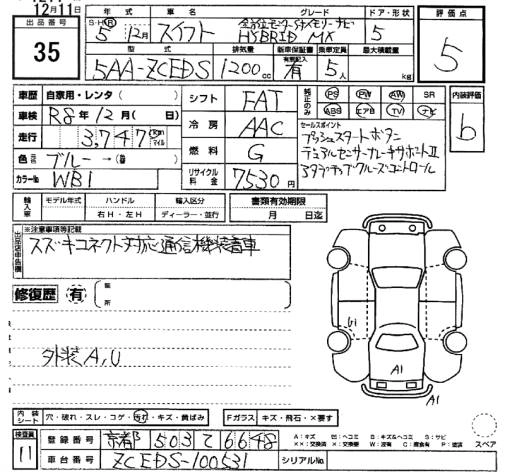 12月11日
出品番号 35
年式 S・H・R 5年12月
車名 スイフト
グレード 全方位モニター付メモリーナビ HYBRID MX
ドア・形状 5
評価点 5
型式 5AA-ZCEDS
排気量 1200cc
新車保証書 有
乗車定員 5人
最大積載量 kg
車歴 自家用・レンタ( )
車検 R8年12月( 日)
走行 3,747 Km マイル
色 ブルー→
カラーNo WB1
シフト FAT
冷房 AAC
燃料 G
リサイクル料金 7530円
純正のみ PS PW AW SR
ABS エアB TV ナビ
セールスポイント
プッシュスタートボタン
デュアルセンサーブレーキサポートⅡ
アダプティブクルーズコントロール
内装評価 b
輸入車 モデル年式 ハンドル 右H・左H 輸入区分 ディーラー・並行
書類有効期限 月 日迄
※注意事項等記載
出品店申告欄
スズキコネクト対応通信機装着車
修復歴 有 箇所
外装A,U
U1
A1
A1
内装シート 穴・破れ・スレ・コゲ・汚れ・キズ・黄ばみ
Fガラス キズ・飛石・×要す
検査員 11
登録番号 京都 503 て 6648
A:キズ U:ヘコミ B:キズ&ヘコミ S:サビ
XX:交換済 X:交換要 W:波有 C:腐食有 P:塗装 スペア
車台番号 ZCEDS-100531
シリアルNo.